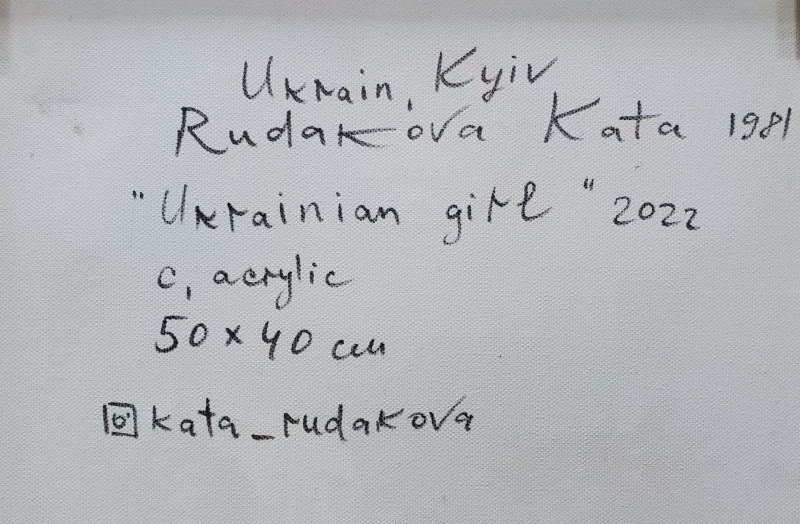 Ukrain, Kyiv
Rudakova Kata 1981
"Ukrainian girl" 2022
c, acrylic
50 x 40 cm
kata_rudakova